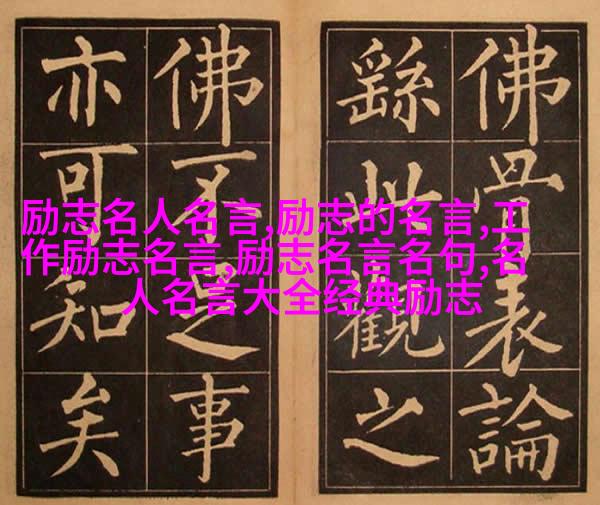 佛骨表論
繇此觀之
佛不足事
亦可知矣
励志名人名言,励志的名言,工
作励志名言,励志名言名句,名
人名言大全经典励志